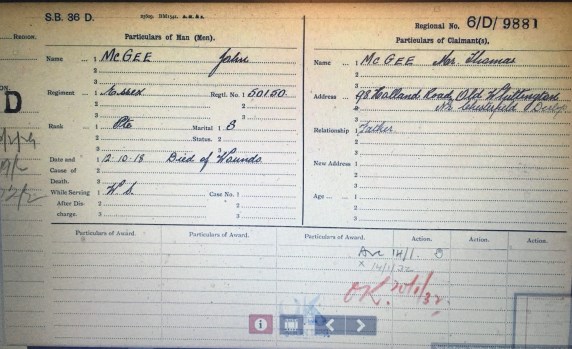 S.B. 36 D.
Regional No. 6/D/9881
Particulars of Man (Men).
Particulars of Claimant(s).
REGION.
Name 1 McGEE John
2
3
Name ... 1 McGEE Mr. Thomas
2
3
Regiment 1 Essex Regtl. No. 1 50150
2 2
3 3
Address ... 1 98 Holland Road, Old Whittington
2 Nr. Chesterfield Derby
3
D
Rank 1 Pte Marital 1 S
2 Status. 2
3 3
Relationship 1 Father
2
3
Date and 1 12-10-18 Died of Wounds
Cause of 2
Death. 3
New Address 1
2
3
While Serving 1 W.S. Case No. 1
After Dis- 2 2
charge. 3 3
Age ... 1
2
3
Particulars of Award. Particulars of Award. Particulars of Award. Action. Action. Action.
14/1.
14/1/32
OK. 20/1/32.